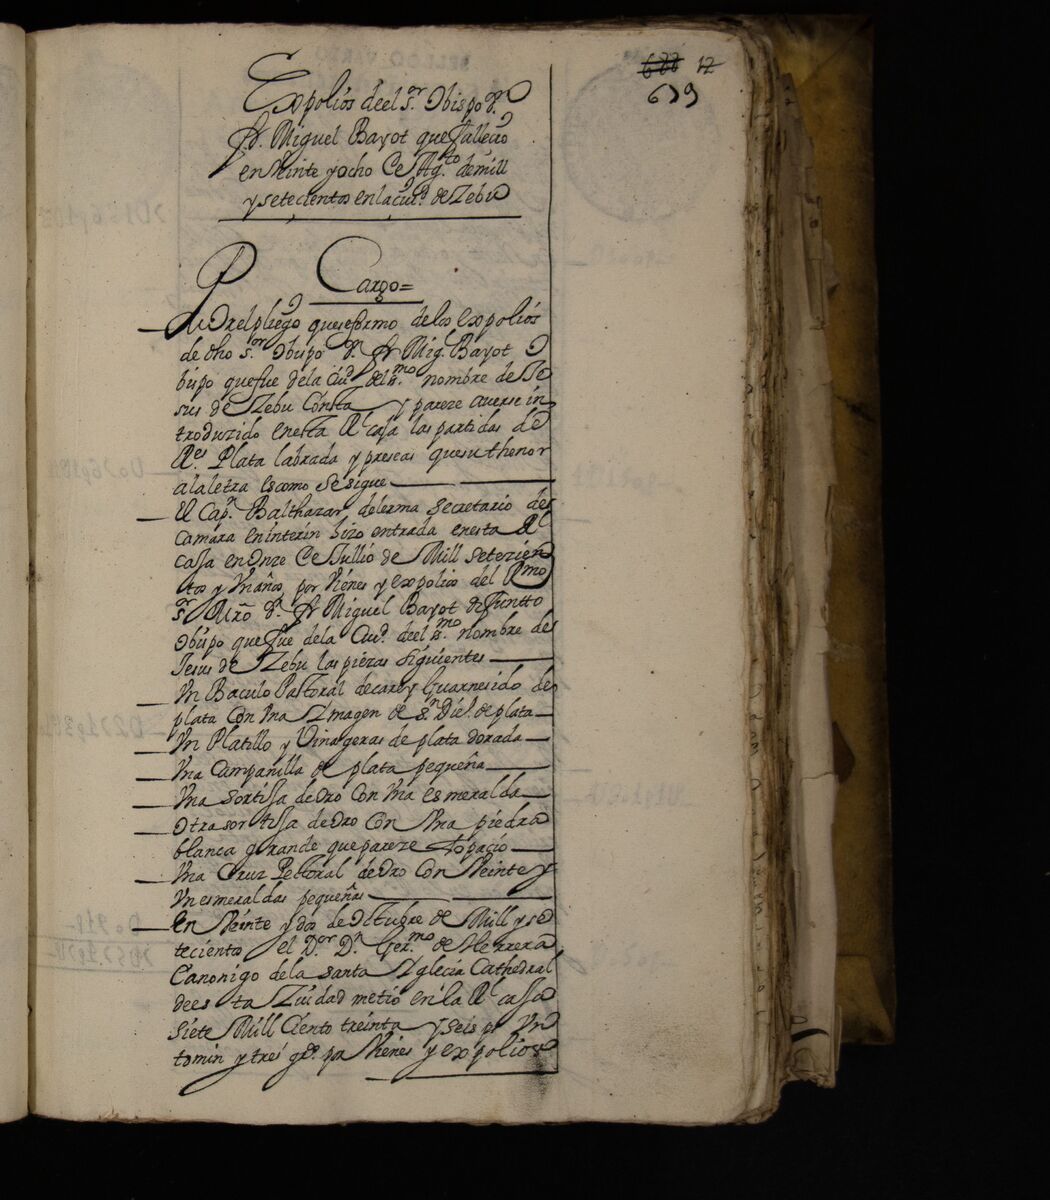 12
639
Expolios deel s.or Obispo d.n
fr. Miguel Bayot que fallecio
en Veinte y ocho de Ag.to de mill
y setecientos en la ciu.d de Zebu
Cargo=
Por el pliego que se formo de los expolios
de dho s.or Obispo d.n fr Mig.l Bayot O
bispo que fue de la Ciu.d del s.mo nombre de Je
sus de Zebu Consta y pareze averse in
troduzido en esta Rl caja las partidas de
R.es Plata labrada y preseas que su thenor
a la letra es como se sigue
El Cap.n Balthazar de lerma secretario de
Camara en interin hizo entrada en esta Rl
caja en Onze de Jullio de Mill setezien
tos y Un años por Vienes y expolios del Rmo
s.or Mro d.n fr Miguel Bayot difuntto
Obispo que fue de la Ciu.d deel s.mo nombre de
Jesus de Zebu las piezas siguientes
Un Baculo Pastoral de carey Guarnesido de
plata Con Una Ymagen de s.n Die.o de plata
Un Platillo y Vinageras de plata dorada
Una Campanilla de plata pequeña
Una sortija de Oro Con Una esmeralda
Otra sortija de Oro Con Una piedra
blanca grande que pareze topacio
Una Cruz Pectoral de Oro Con Veinte y
Un esmeraldas pequeñas
En Veinte y dos de Octubre de Mill y se
tecientos el D.or D.n Ger.mo de Herrera
Canonigo de la santa Yglecia Cathedral
de esta Ziudad metio en la Rl caja
siete Mill Ciento treinta y seis ps Un
tomin y tres gr.s por Vienes y expolios